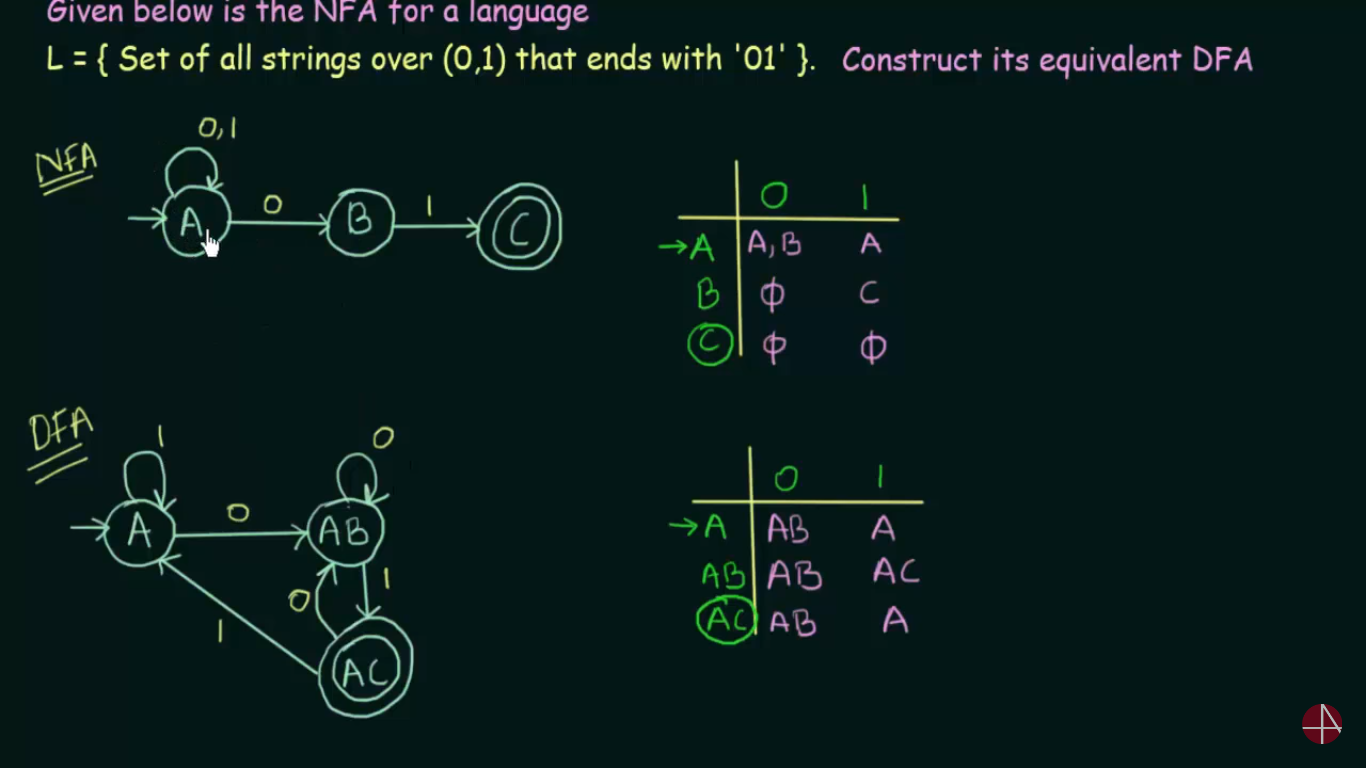 Given below is the NFA for a language
L = { Set of all strings over (0,1) that ends with '01' }. Construct its equivalent DFA
NFA
0,1
A
0
B
1
C
0 1
→A A,B A
B ϕ C
C ϕ ϕ
DFA
1
0
A
0
AB
1
0
1
AC
0 1
→A AB A
AB AB AC
AC AB A